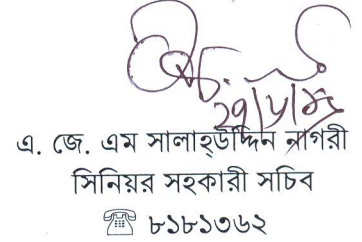 ২৭/৮/১৮
এ. জে. এম সালাহ্উদ্দিন নাগরী
সিনিয়র সহকারী সচিব
☎ ৮১৮১৩৬২